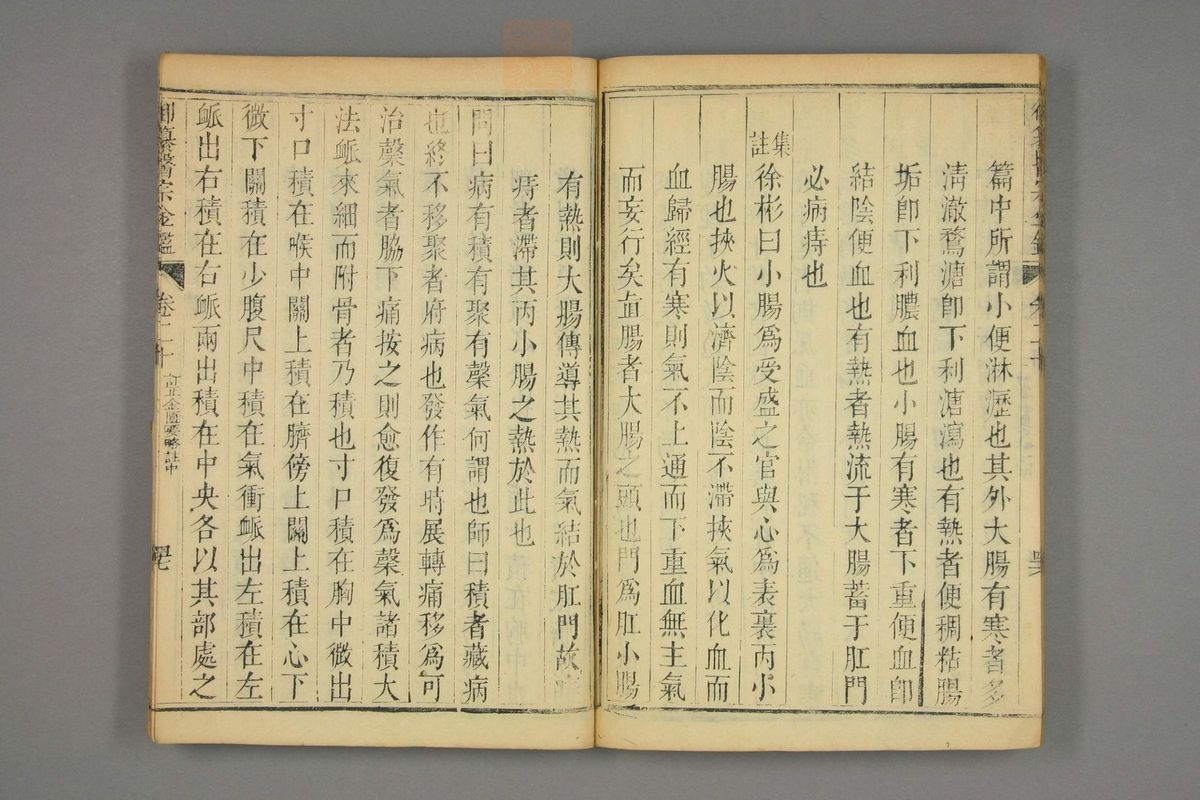 篇中所謂小便淋瀝也其外大腸有寒者多
清澈鶩溏卽下利溏瀉也有熱者便稠粘腸
垢卽下利膿血也小腸有寒者下重便血卽
結陰便血也有熱者熱流于大腸蓄于肛門
必病痔也
集註
徐彬曰小腸爲受盛之官與心爲表裏丙小
腸也挾火以濟陰而陰不滯挾氣以化血而
血歸經有寒則氣不上通而下重血無主氣
而妄行矣直腸者大腸之頭也門爲肛小腸
四六
有熱則大腸傳導其熱而氣結於肛門故
痔者滯其丙小腸之熱於此也
問曰病有積有聚有䅽氣何謂也師曰積者藏病
也終不移聚者府病也發作有時展轉痛移爲可
治䅽氣者脇下痛按之則愈復發爲䅽氣諸積大
法䘑來細而附骨者乃積也寸口積在胸中微出
寸口積在喉中關上積在臍傍上關上積在心下
微下關積在少腹尺中積在氣衝䘑出左積在左
䘑出右積在右䘑兩出積在中央各以其部處之
御纂醫宗金鑑
卷二十
訂正金匱要略註中
四七